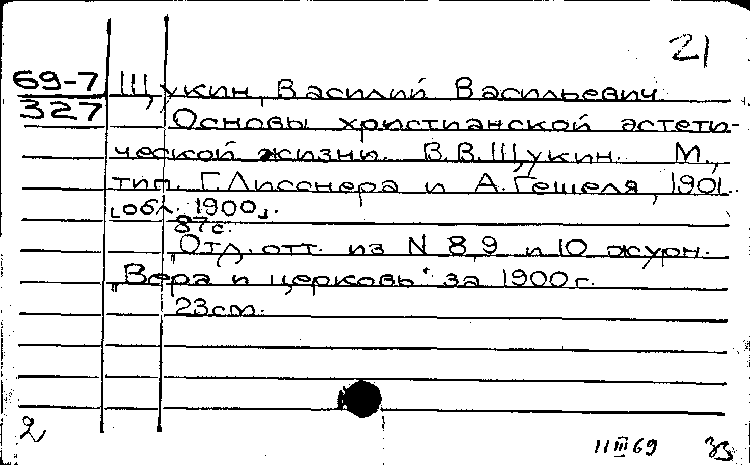 21
69-7 Щукин, Василий Васильевич
327
Основы христианской эстети-
ческой жизни. В.В.Щукин. М.,
тип. Г.Лисснера и А.Гешеля, 1901.
[обл. 1900].
87с.
Отд. отт. из N 8,9 и 10 журн.
„Вера и церковь" за 1900г.
23см.
2
11 III 69